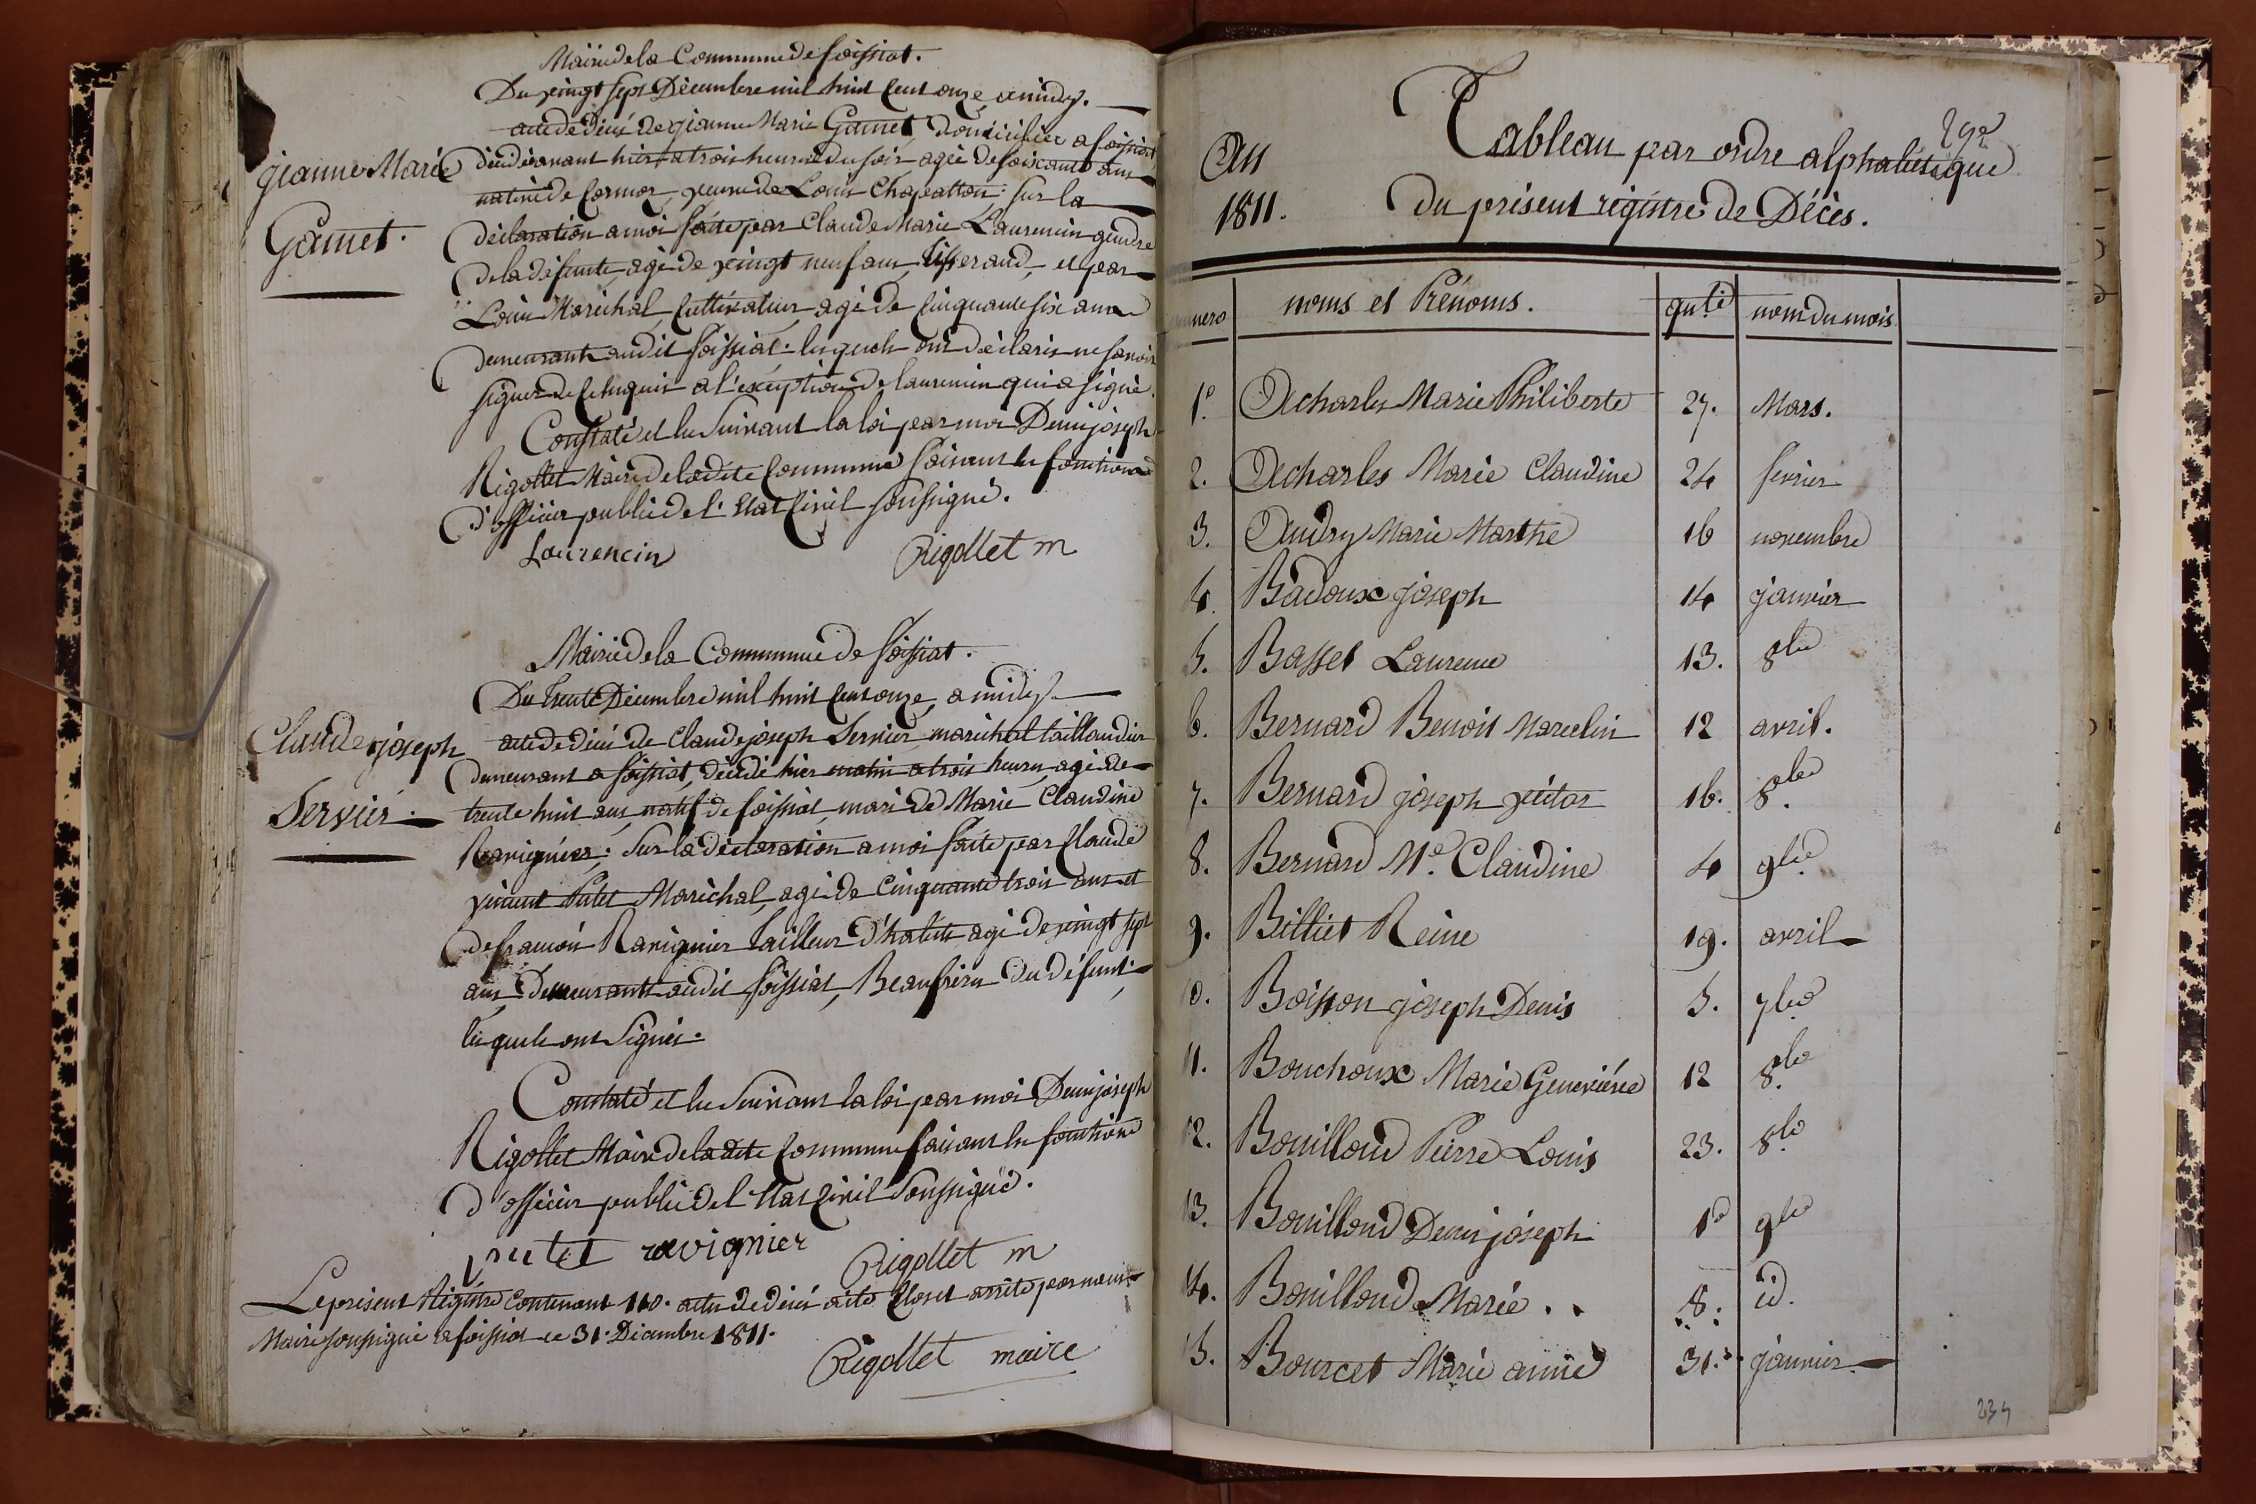 Mairie de la Commune de foissiat.
Du vingt sept Décembre mil huit Cent onze, a midy.
acte de décés de jeanne Marie Gamet, domiciliée a foissiat
jeanne Marie
décédée hier a trois heures du soir, agée de soixante ans
native de Cormoz, veuve de Louis Chapatton: sur la
Gamet.
déclaration a moi faite par Claude Marie Laurencin gendre
de la défunte, agé de vingt neuf ans, tisserand, et par
Louis Maréchal, Cultivateur, agé de Cinquante six ans
demeurants audit foissiat: lesquels ont déclarés ne savoir
signer de ce requis a l'exception de laurencin qui a signé.
Constaté et lu suivant la loi par moi Denis joseph
Rigollet Maire de la dite Commune faisant les fonctions
d'officier public de l'Etat Civil soussigné.
Laurencin Rigollet m
Mairie de la Commune de foissiat.
Du trente Décembre mil huit Cent onze, a midy.
Claude joseph
acte de décés de Claude joseph Servier maréchal taillandier
demeurant a foissiat, décédé hier matin a trois heures, agé de
Servier.
trente huit ans, natif de foissiat, mari de Marie Claudine
Ravignier: Sur la déclaration a moi faite par Claude
vincent Putet Maréchal, agé de Cinquante trois ans et
de françois Ravignier tailleur d'habits agé de vingt sept
ans, Demeurants audit foissiat, Beaufrères du défunt,
lesquels ont signés.
Constaté et lu suivant la loi par moi Denis joseph
Rigollet Maire de la dite Commune faisant les fonctions
d'officier public de l'Etat Civil Soussigné.
putet ravignier Rigollet m
Le présent Régistre Contenant 110. actes de décés a été Clos et arrêté par nous
Maire soussigné a foissiat ce 31. Décembre 1811.
Rigollet maire
An
1811.
Tableau par ordre alphabétique
du présent régistre de Décès.
numero noms et Prénoms. qnte. nom du mois
1º. Acharles Marie Philiberte 27. Mars.
2. Acharles Marie Claudine 24 fevrier
3. Andry Marie Marthe 16 novembre
4. Badoux joseph 14 janvier
5. Basset Laurence 13. 8bre
6. Bernard Benoit Marcelin 12 avril.
7. Bernard joseph victor 16. 8.bre
8. Bernard Me. Claudine 4 9bre
9. Billiet Reine 19. avril
10. Boisson joseph Denis 5. 7bre
11. Bouchoux Marie Genevieve 12 8.bre
12. Bouilloud Pierre Louis 23. 8.bre
13. Bouilloud Denis joseph 1er 9bre
14. Bouilloud Marie . . 8. id.
15. Bourcet Marie anne 31. janvier
234